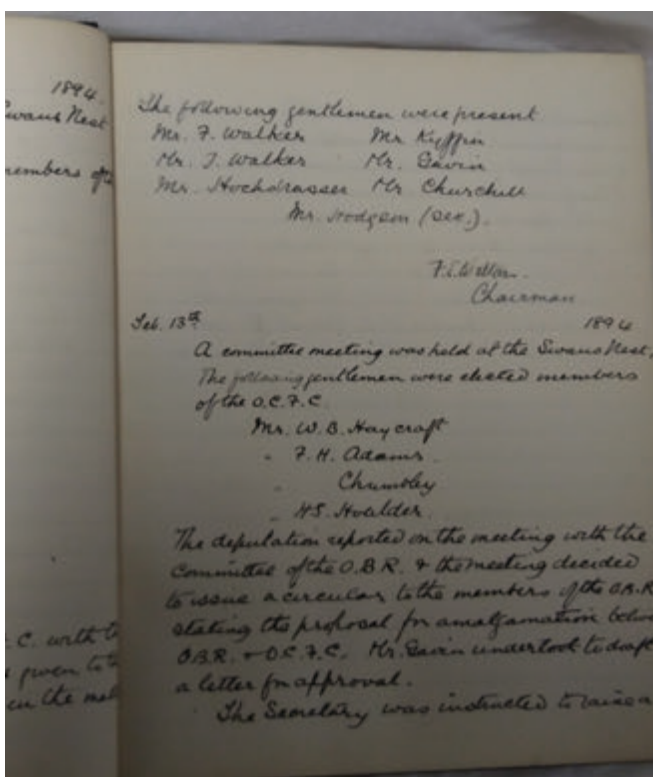 1894.
Swans Nest
members of
C. with
given to
in the
The following gentlemen were present
Mr. F. Walker Mr Kyffin
Mr. J. Walker Mr. Gavin
Mr. Hochdrasser Mr Churchill
Mr. Hodgson (sec.).
Chairman
Feb. 13th 1894
A committee meeting was held at the Swans Nest,
The following gentlemen were elected members
of the O.C.F.C.
Mr. W. B. Haycraft
" F. H. Adams.
" Chumbley
" HS. Houlder.
The deputation reported on the meeting with the
Committee of the O.B.R. & the meeting decided
to issue a circular to the members of the O.B.R
stating the proposal for amalgamation
O.B.R. & O.C.F.C. Mr. Gavin undertook to draft
a letter for approval.
The Secretary was instructed to